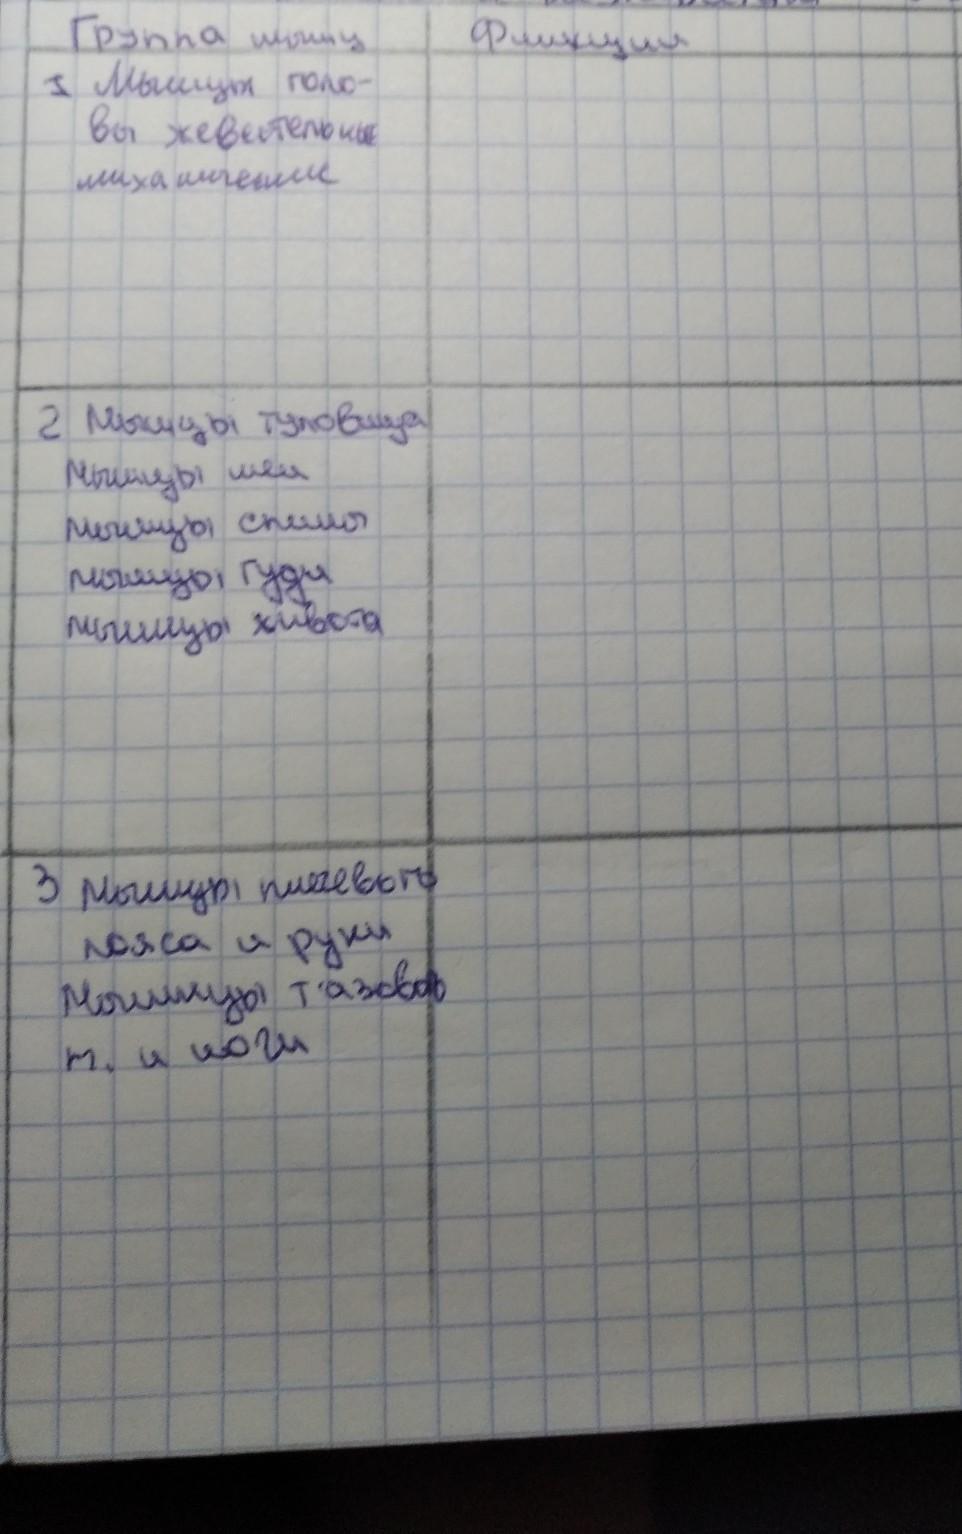 Группа мышц
Функция
1 Мышцы голо-
вы жевательные
миханические
2 Мышцы туловища
Мышцы шеи
мышцы спины
мышцы груди
мышцы живота
3 Мышцы плечевого
пояса и руки
Мышцы тазово
п. и ноги